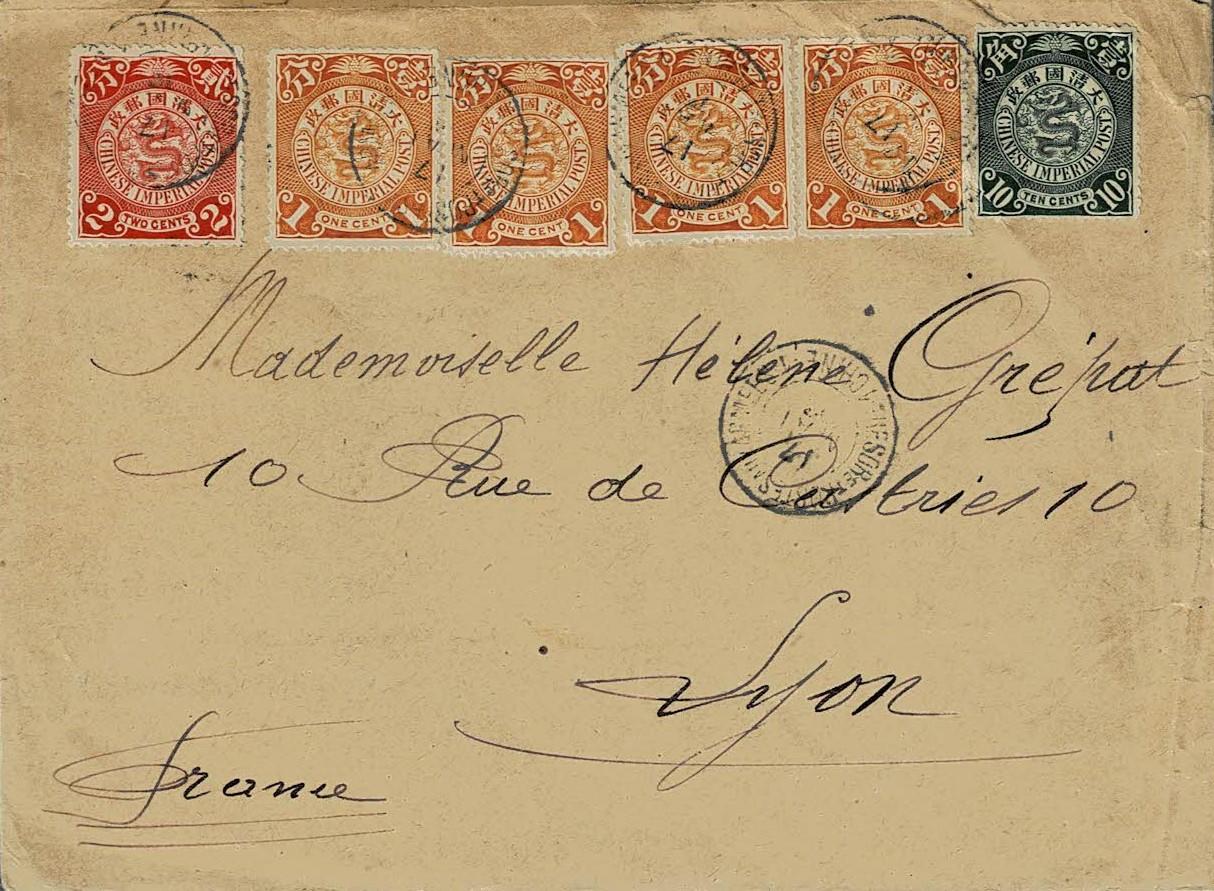 貳分 大清國郵政 CHINESE IMPERIAL POST 2 TWO CENTS 2
壹分 大清國郵政 CHINESE IMPERIAL POST 1 ONE CENT 1
壹分 大清國郵政 CHINESE IMPERIAL POST 1 ONE CENT 1
壹分 大清國郵政 CHINESE IMPERIAL POST 1 ONE CENT 1
壹分 大清國郵政 CHINESE IMPERIAL POST 1 ONE CENT 1
壹角 大清國郵政 CHINESE IMPERIAL POST 10 TEN CENTS 10
Mademoiselle Hélène Grépat
10 Rue de Castries 10
Lyon
France